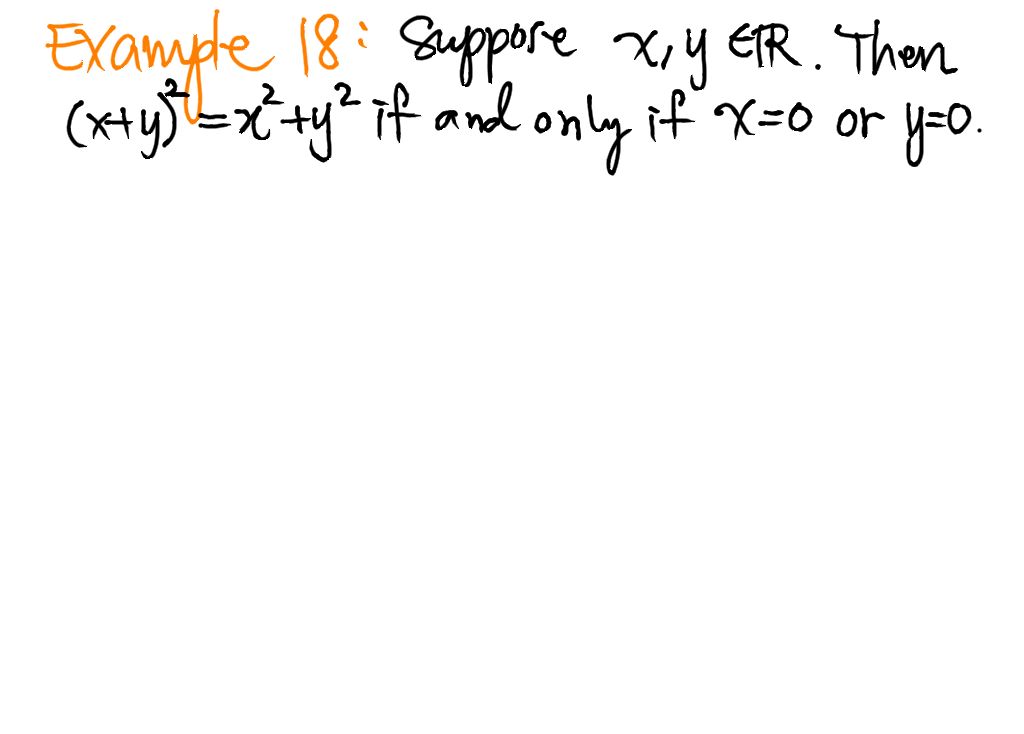 Example 18: Suppose x, y ∈ ℝ. Then
(x+y)²=x²+y² if and only if x=0 or y=0.